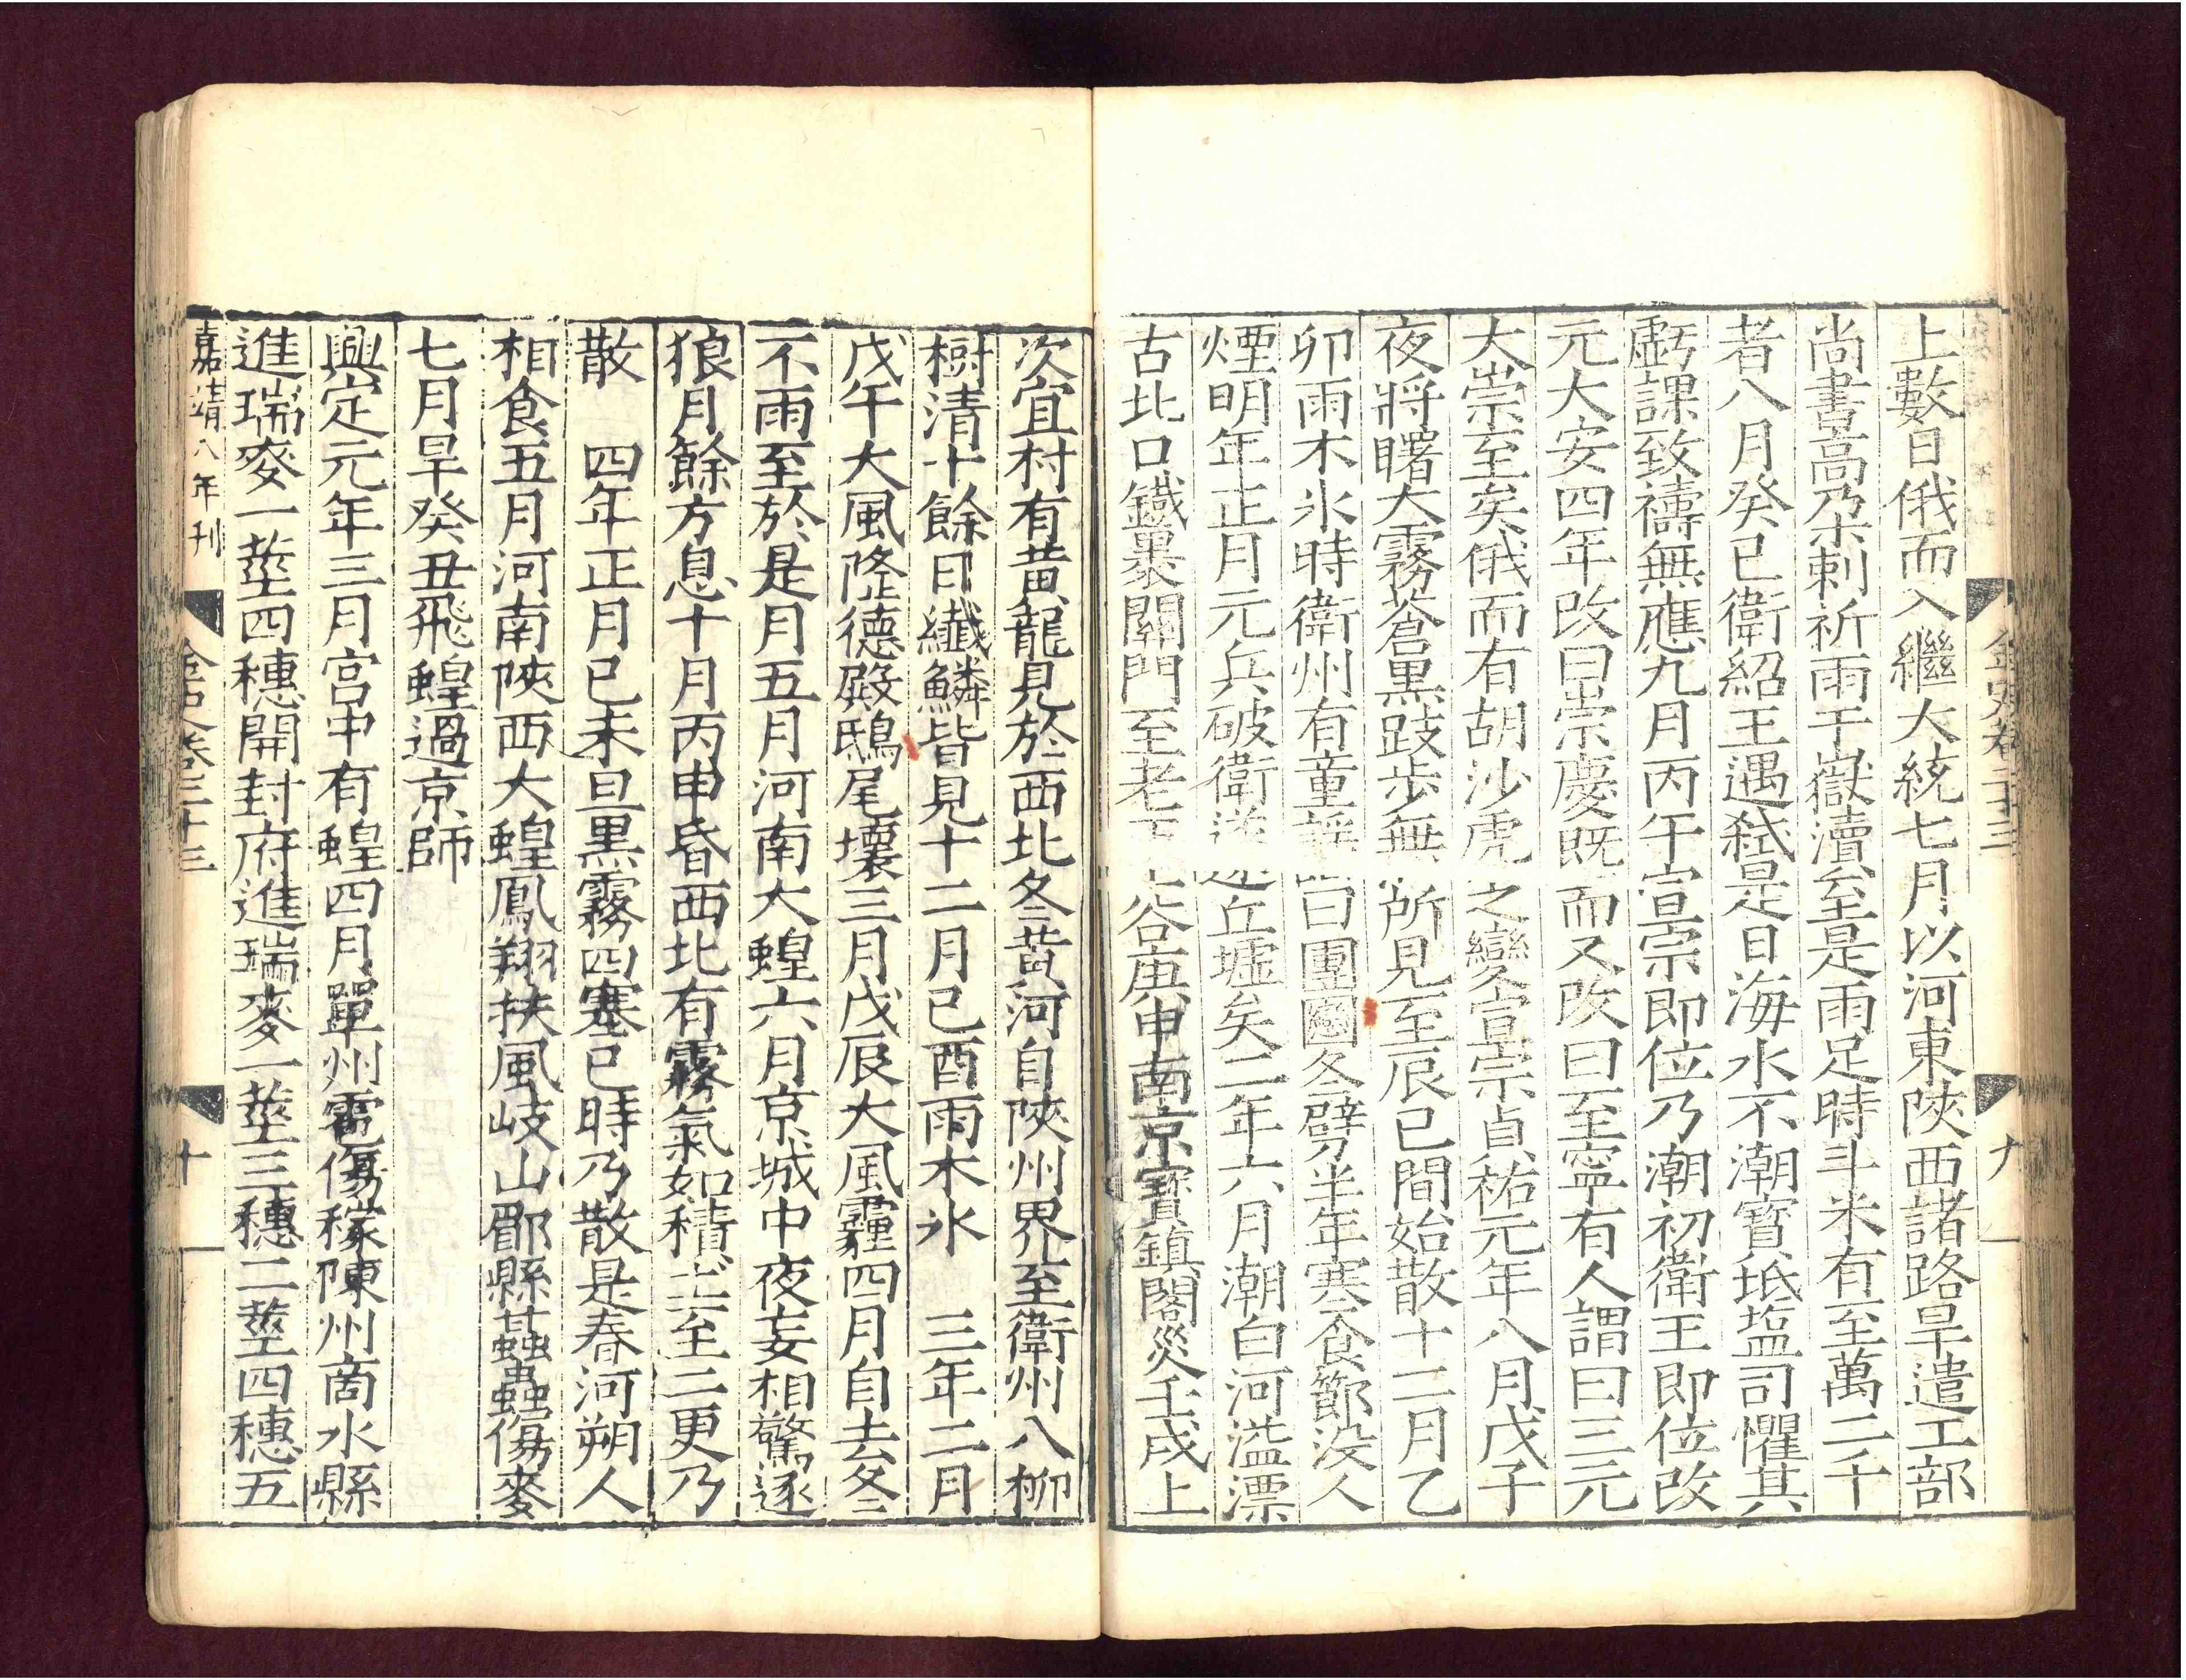 上數日俄而入繼大統七月以河東陜西諸路旱遣工部
尚書高朶剌祈雨于嶽瀆至是雨足時斗米有至萬二千
者八月癸已衛紹王遇弒是日海水不潮寳坻塩司懼其
虧課致禱無應九月丙午宣宗即位乃潮初衛王即位改
元大安四年改曰崇慶既而又改曰至寧有人謂曰三元
大崇至矣俄而有胡沙虎之變宣宗貞祐元年八月戊子
夜將曙大霧蒼黒跂步無所見至辰已間始散十二月乙
卯雨木氷時衛州有童謡曰團圞冬劈半年寒食節没人
煙明年正月元兵破衛遂丘墟矣二年六月潮白河溢漂
古北口鐵裹關門至老王谷庚申南京寳鎮閣災壬戌上
次宜村有黄龍見於西北冬黄河自陜州界至衛州八柳
樹清十餘日纖鱗皆見十二月已酉雨木氷　三年二月
戊午大風隆德殿鴟尾壊三月戊辰大風霾四月自去冬
不雨至於是月五月河南大蝗六月京城中夜妄相驚逐
狼月餘方息十月丙申昏西北有霧氣如積土至二更乃
散　四年正月已未旦黒霧四塞已時乃散是春河朔人
相食五月河南陜西大蝗鳳翔扶風岐山郿縣䖝蟲傷麥
七月旱癸丑飛蝗過京師
興定元年三月宫中有蝗四月單州雹傷稼陳州商水縣
進瑞麥一莖四穗開封府進瑞麥一莖三穗二莖四穗五
嘉靖八年刊
金史卷二十三
十
金史卷二十三
九